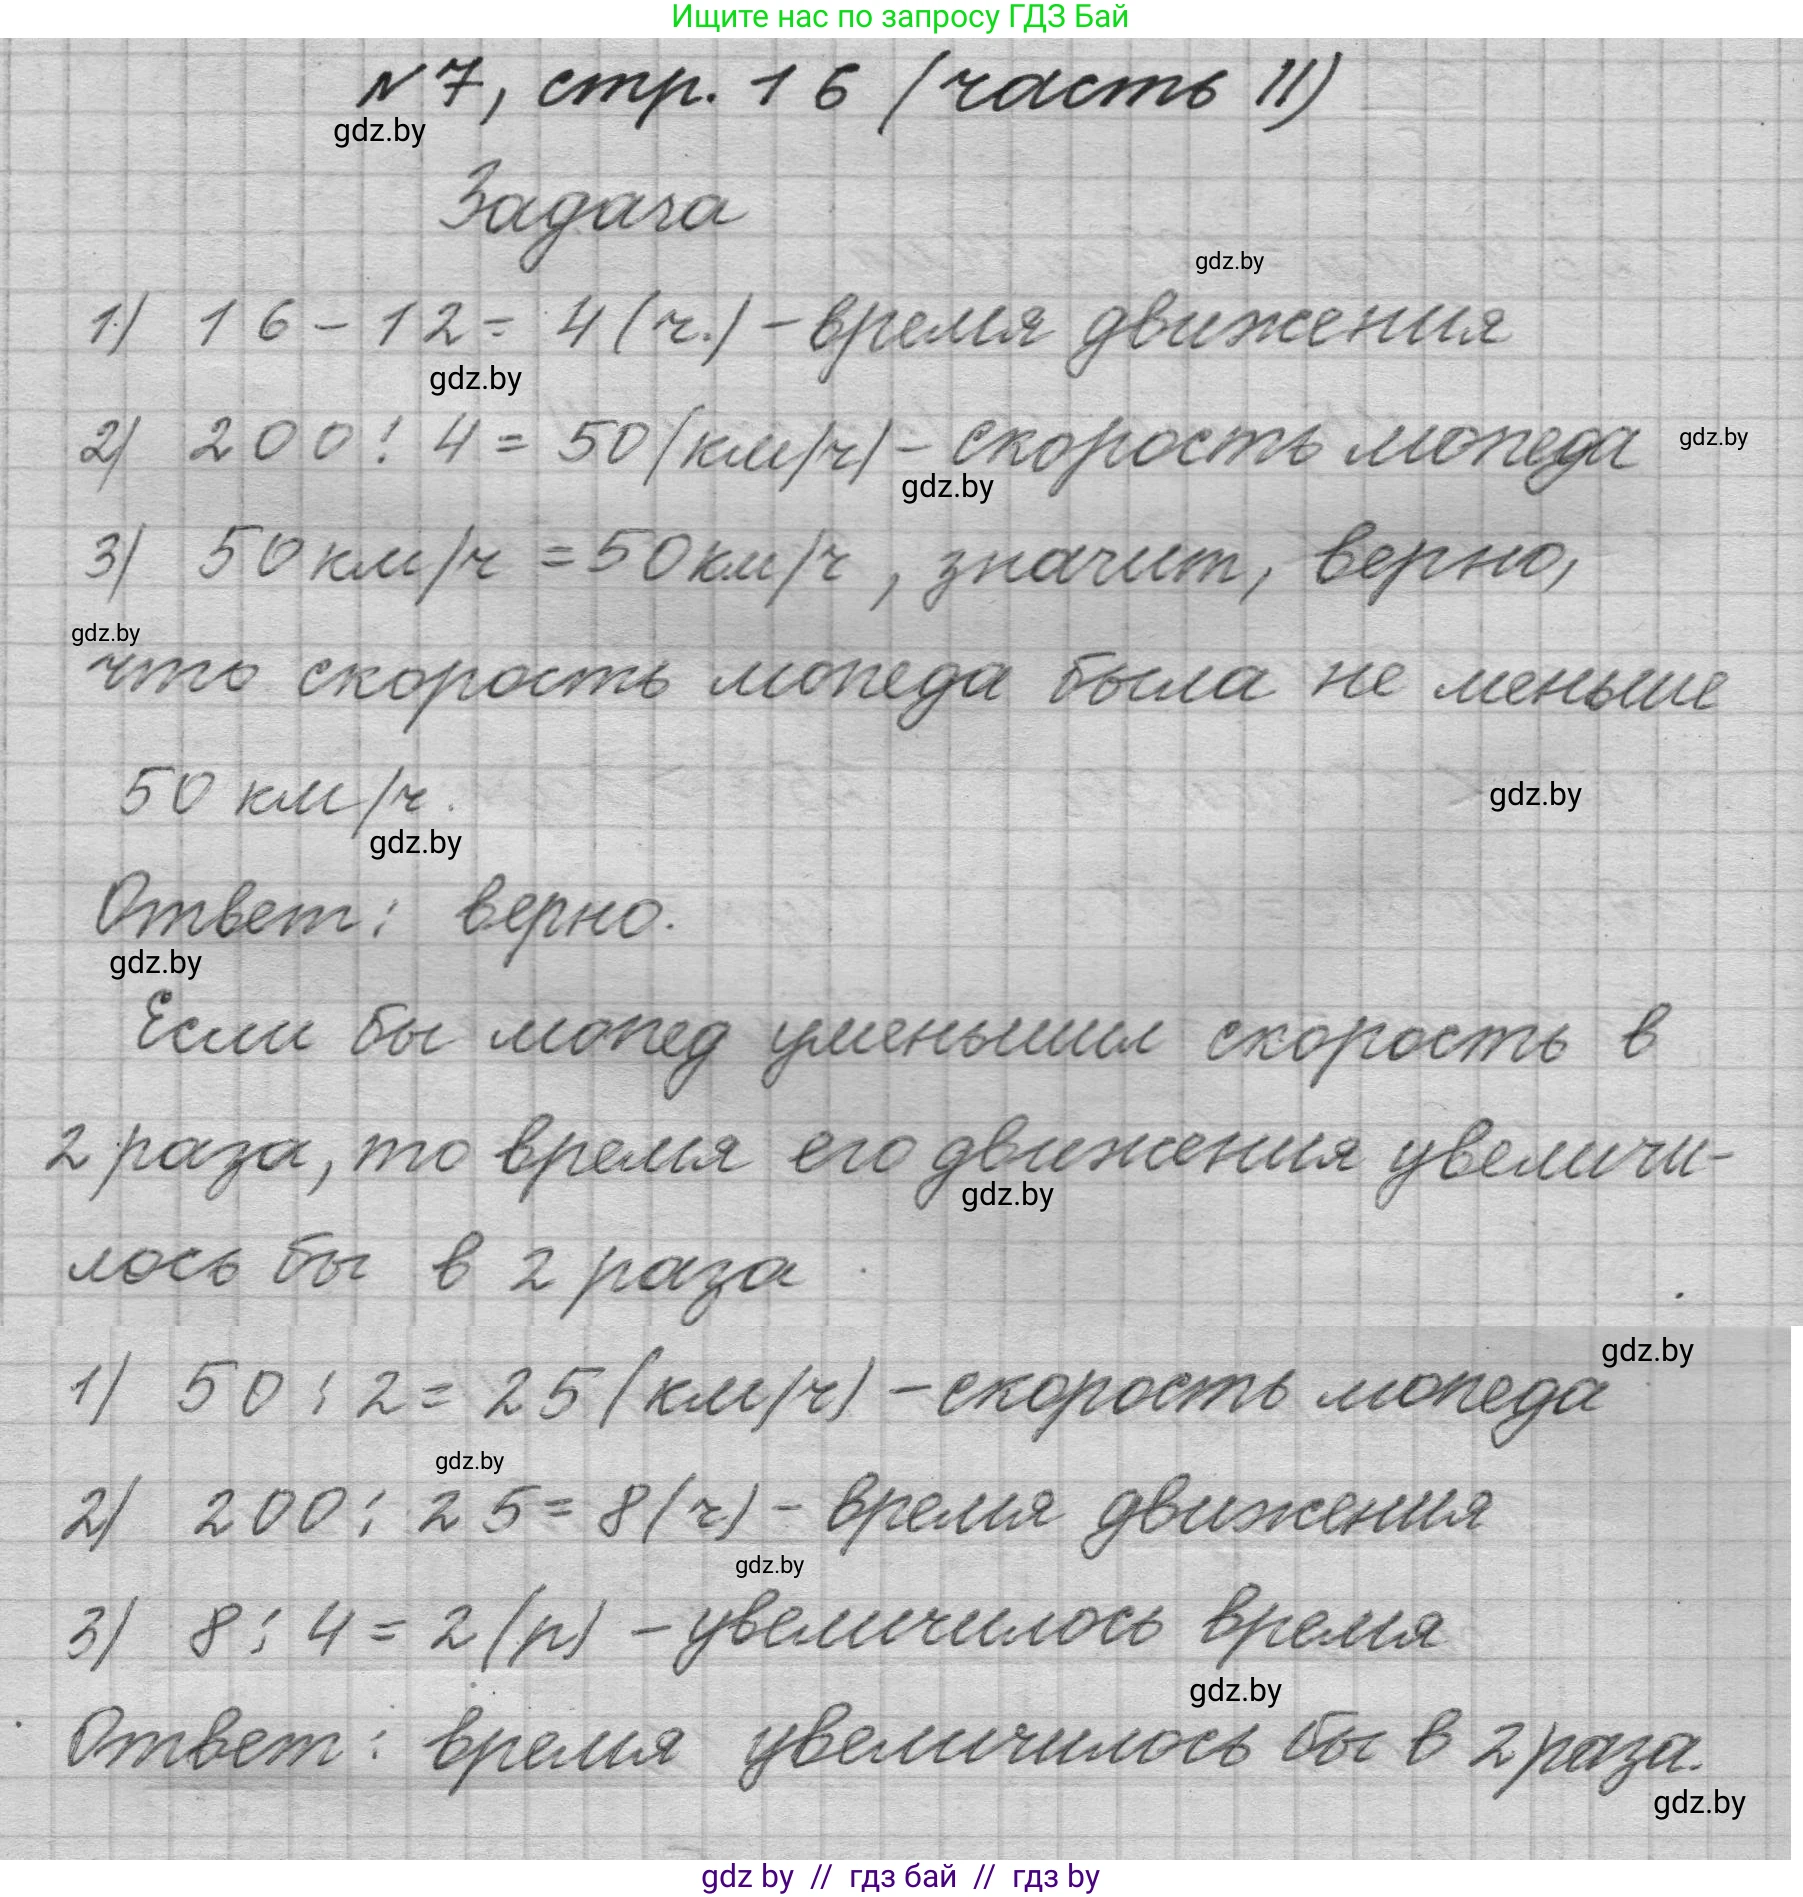 Ищите нас по запросу ГДЗ Бай
№7, стр. 16 (часть II)
gdz.by
Задача
gdz.by
1) 16 - 12 = 4 (ч.) - время движения
gdz.by
2) 200 : 4 = 50 (км/ч) - скорость мопеда
gdz.by
gdz.by
3) 50 км/ч = 50 км/ч, значит, верно,
gdz.by
что скорость мопеда была не меньше
50 км/ч.
gdz.by
gdz.by
Ответ: верно.
gdz.by
Если бы мопед уменьшил скорость в
2 раза, то время его движения увеличи-
gdz.by
лось бы в 2 раза.
gdz.by
1) 50 : 2 = 25 (км/ч) - скорость мопеда
gdz.by
2) 200 : 25 = 8 (ч) - время движения
gdz.by
3) 8 : 4 = 2 (р) - увеличилось время
gdz.by
Ответ: время увеличилось бы в 2 раза.
gdz.by
gdz by // гдз бай // гдз by